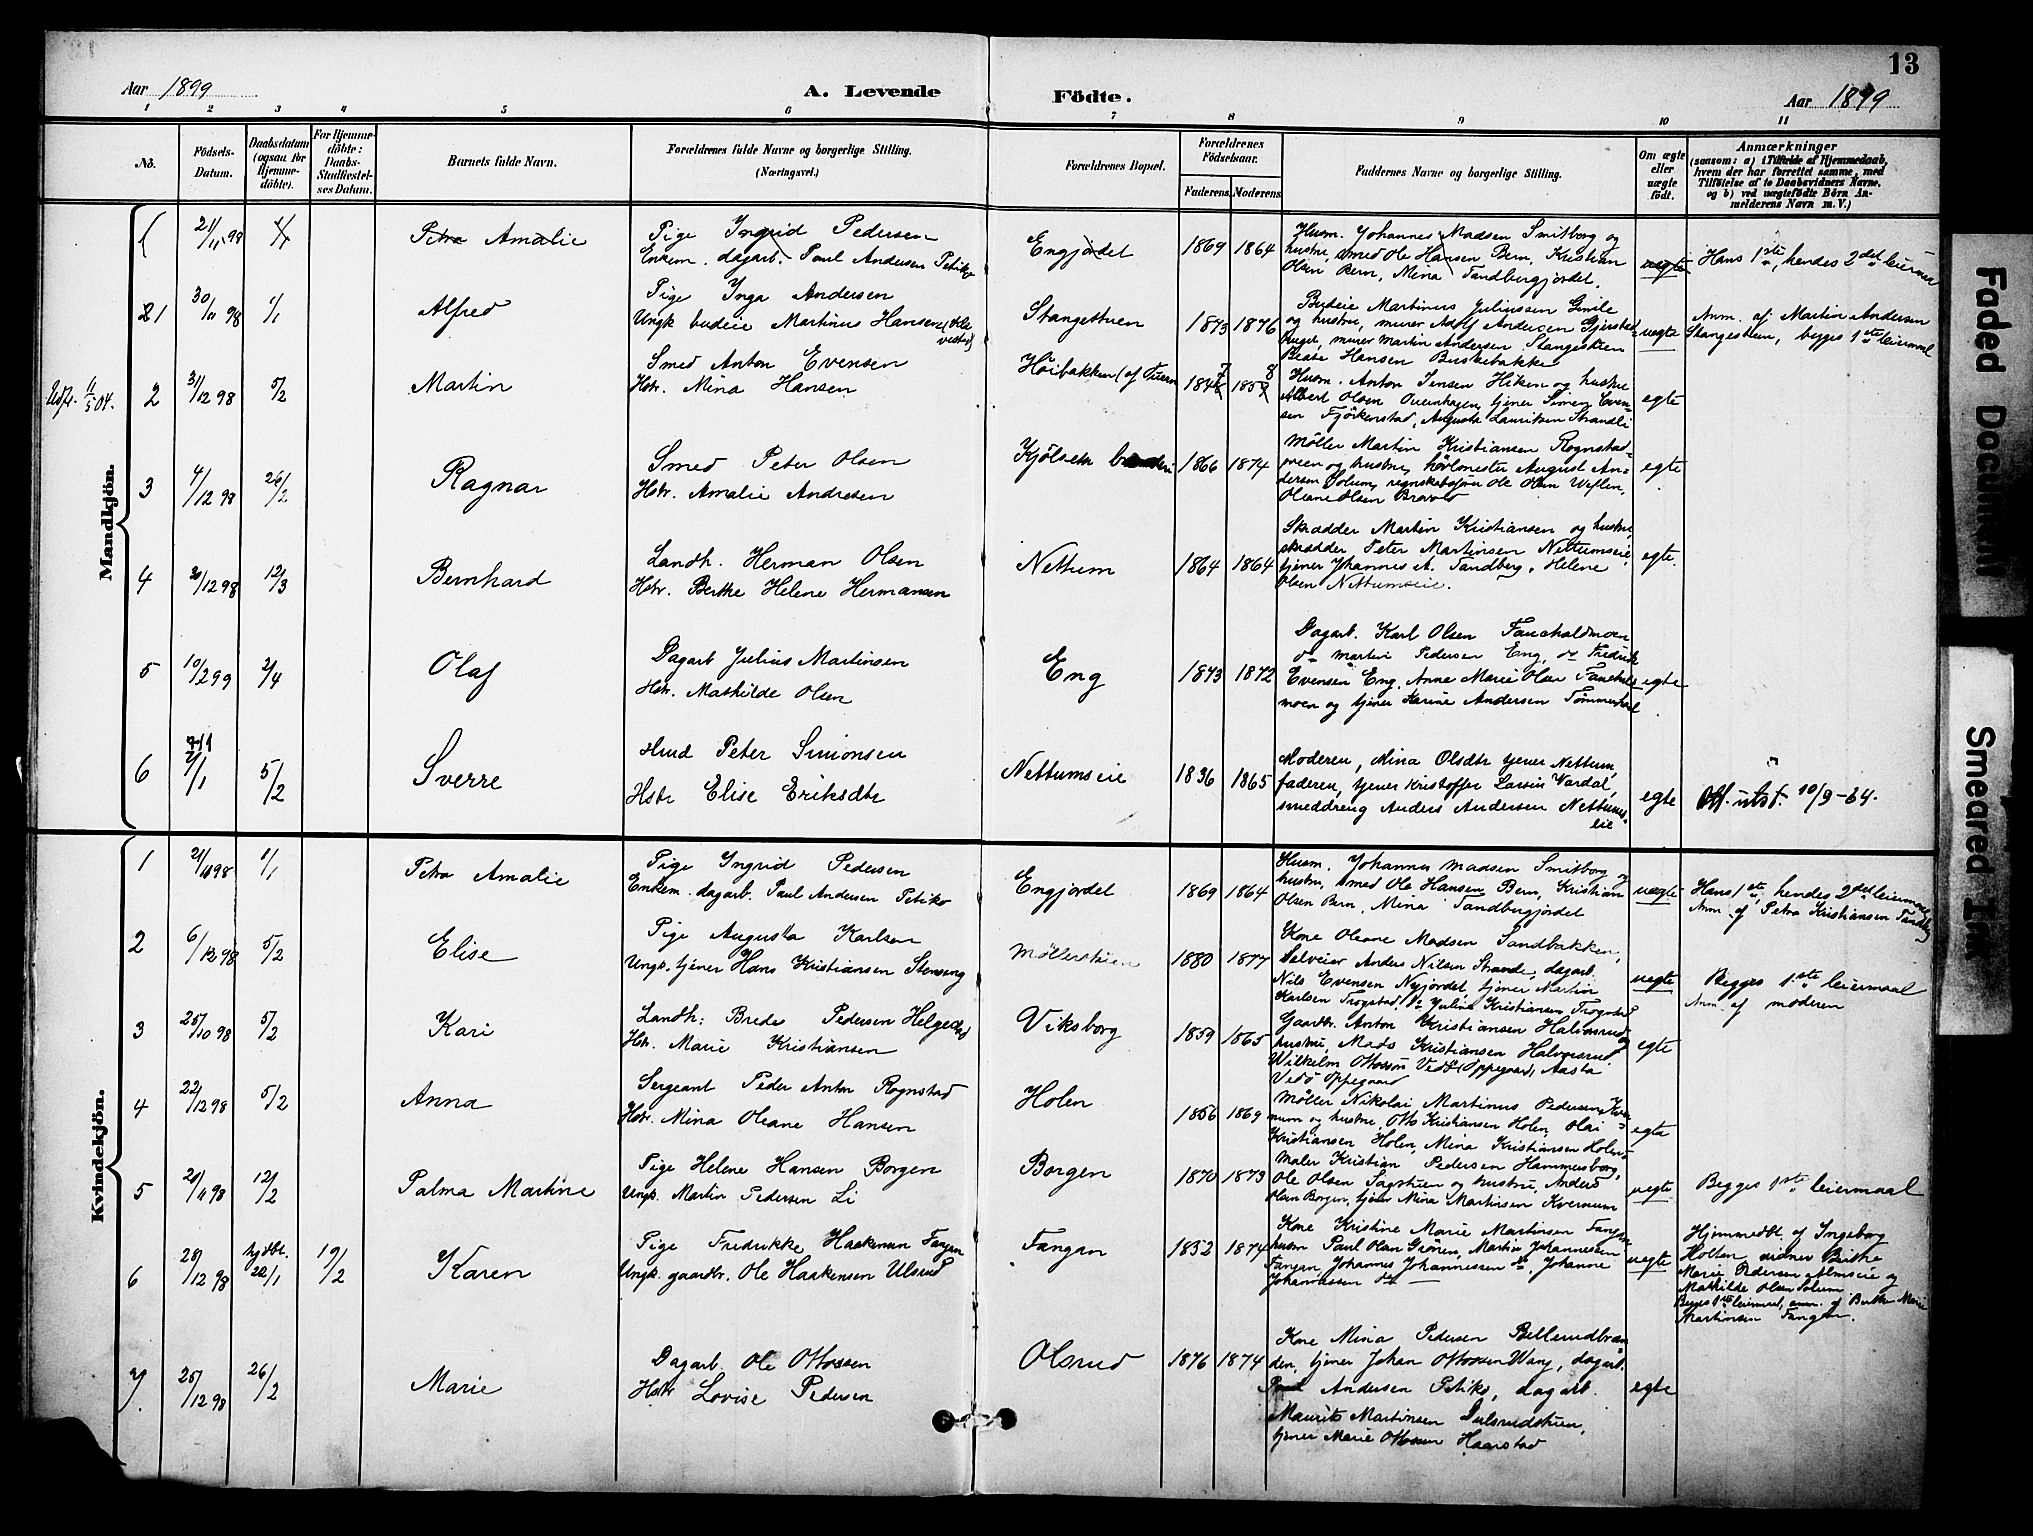 13
Aar 1899
A. Levende Födte.
Aar 1899
1 2 3 4 5 6 7 8 9 10 11
No.
Födsels-
Datum.
Daabsdatum
(ogsaa for
Hjemme-
döbte).
For Hjemme-
döbte:
Daabs-
Stadfæstel-
ses Datum.
Barnets fulde Navn.
Forældrenes fulde Navne og borgerlige Stilling.
(Næringsvei.)
Forældrenes Bopæl.
Forældrenes
Födselsaar.
Faderens. Moderens.
Faddernes Navne og borgerlige Stilling.
Om ægte
eller
uægte
födt.
Anmærkninger
(saasom: a) i Tilfælde af Hjemmedaab,
hvem der har forrettet samme, med
Tilföielse af to Daabsvidners Navne,
og b) ved uægtefödte Börn An-
melderens Navn m. V.)
Mandkjön.
21/11 98
Petra Amalie
Pige Ingrid Pedersen
Enkem. dagarb. Paul Andersen Petiko
Engjordet
1869 1864
Husm. Johannes Madsen Smitborg og
hustru, smed Ole Hansen Bern, Kristian
Olsen Bern, Mina Tandbergjordet.
uegte
Hans 1ste, hendes 2det leiermaal
21 30/11 98 1/1
Alfred
Pige Inga Andersen
Ungk budeie Martinus Hansen
Stangestuen
1873 1876
Budeie Martinus Juliussen Smile
og hustru, murer Adolf Andersen
murer Martin Andersen Stangestuen
Beate Hansen Buskebakke
uegte
Anm. af Martin Andersen
Stangestuen, begges 1ste leiermaal
Udfr. 11/5 04.
2 31/12 98 5/2
Martin
Smed Anton Evensen
Hstr. Mina Hansen
Höibakken
Husm. Anton Jensen Hiken og hustru
Albert Olsen tjener Simen Even-
sen Fjörkenstad, Augusta Lauritsen Strandli
egte
3 4/12 98 26/2
Ragnar
Smed Peter Olsen
Hstr. Amalie Andresen
Kjölseth
1866 1874
Möller Martin Kristiansen Rognstad-
veien og hustru, hövlmester August An-
dersen Solum, regnskabsförer Ole Olsen
Oleane Olsen Bravold
egte
4 30/12 98 12/3
Bernhard
Landh. Herman Olsen
Hstr. Berthe Helene Hermansen
Nettum
1864 1864
Skrædder Martin Kristiansen og hustru,
skrædder Peter Martinsen Nettumseie,
tjener Johannes A. Tandberg, Helene
Olsen Nettumseie.
egte.
5 10/2 99 2/4
Olaf
Dagarb Julius Martinsen
Hstr. Mathilde Olsen
Eng
1873 1872
Dagarb. Karl Olsen Fauchaldmoen
do Martin Pedersen Eng, do Fredrik
Evensen Eng, Anne Marie Olsen Fauchald-
moen og tjener Karine Andersen
egte
6 5/2
Sverre
Husd Peter Simonsen
Hstr Elise Eriksdtr
Nettumseie
1836 1865
Moderen, Mina Olsdtr tjener Nettum,
faderen, tjener Kristoffer Larsen Vardal,
smeddreng Anders Andersen Nettums-
eie
egte
"
Off. utst. 10/9-64.
Kvindekjön.
1 21/11 98 1/1
Petra Amalie
Pige Ingrid Pedersen
Enkem. dagarb. Paul Andersen Petiko
Engjordet
1869 1864
Husm. Johannes Madsen Smitborg og
hustru, smed Ole Hansen Bern, Kristian
Olsen Bern, Mina Tandbergjordet
uegte
Hans 1ste, hendes 2det leiermaal
Anm. af Petra Kristiansen Tandberg
2 6/12 98 5/2
Elise
Pige Augusta Karlsen
Ungk. tjener Hans Kristiansen Stenseng
Möllerstuen
1880 1877
Kone Oleane Madsen Sandbakken,
Selveier Anders Nilsen Strande, dagarb.
Nils Evensen Nyjordet tjener Martin
Karlsen Trogstad, do Julie Kristiansen Trogstad
uegte
Begges 1ste leiermaal
Anm. af moderen
3 25/10 98 5/2
Kari
Landh: Brede Pedersen Helgestad
Hstr. Marie Kristiansen
Viksborg
1859 1865
Gaardbr. Anton Kristiansen Halvorsrud og
hustru, Mads Kristiansen Halvorsrud
Wilhelm Ottosen Vedö Oppegaard, Aasta
Vedö Oppegaard
egte
4 22/12 98 5/2
Anna
Sergeant Peder Anton Rognstad
Hstr. Mina Oleane Hansen
Holen
1856 1869
Möller Nikolai Martinus Pedersen Kver-
num og hustru, Otto Kristiansen Holen, Olai
Kristiansen Holen, Mina Kristiansen Holen
egte
5 12/2
Palma Martine
Pige Helene Hansen Borgen
Ungk. Martin Pedersen Li
Borgen
1870 1873
Maler Kristian Pedersen Hammersborg,
Ole Olsen Sagstuen og hustru, Anders
Olsen Borgen, tjener Mina Martinsen Kvernum
uegte
Begges 1ste leiermaal
6 28/12 98 hjdbt. 22/1 19/2
Karen
Pige Fredrikke Haakensen Fangen
Ungk. gaardbr. Ole Haakensen Ulsrud
Fangen
1852 1874
Kone Kristine Marie Martinsen Fangen
husm Paul Olsen Grönen, Martin Johannessen
Fangen, Johannes Johannessen do, Johanne
Johannessen do
uegte
Hjemmedbt. af Ingeborg
Holten, vidner Berthe
Marie Pedersen Almseie og
Mathilde Olsen Solum
Begges 1ste leiermaal, anm. af Berthe Marie
Martinsen Fangen.
7. 25/12 98 26/2
Marie
Dagarb. Ole Ottosen
Hstr Lovise Pedersen
Olsrud
1876 1874
Kone Mina Pedersen Bellerudbraa-
den, tjener Johan Ottosen Wang, dagarb.
Paul Andersen Petiko, dagarb.
Maurits Martinsen Sulerudstuen,
tjener Marie Ottosen Haarstad
egte
Faded Document
Smeared Ink